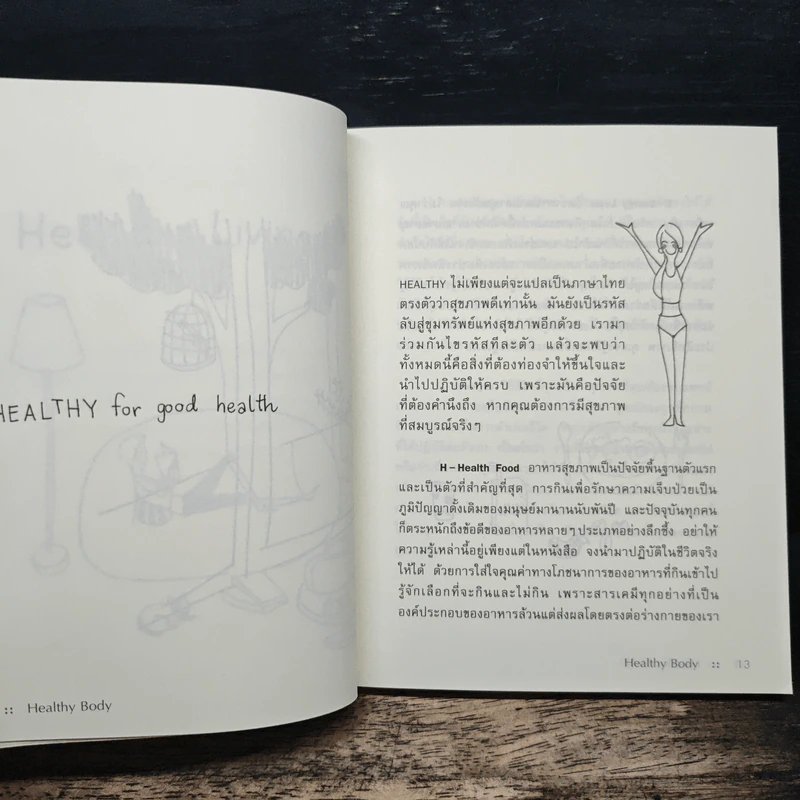 HEALTHY for good health
:: Healthy Body
HEALTHY ไม่เพียงแต่จะแปลเป็นภาษาไทย
ตรงตัวว่าสุขภาพดีเท่านั้น มันยังเป็นรหัส
ลับสู่ขุมทรัพย์แห่งสุขภาพอีกด้วย เรามา
ร่วมกันไขรหัสทีละตัว แล้วจะพบว่า
ทั้งหมดนี้คือสิ่งที่ต้องท่องจำให้ขึ้นใจและ
นำไปปฏิบัติให้ครบ เพราะมันคือปัจจัย
ที่ต้องคำนึงถึง หากคุณต้องการมีสุขภาพ
ที่สมบูรณ์จริงๆ
H – Health Food อาหารสุขภาพเป็นปัจจัยพื้นฐานตัวแรก
และเป็นตัวที่สำคัญที่สุด การกินเพื่อรักษาความเจ็บป่วยเป็น
ภูมิปัญญาดั้งเดิมของมนุษย์มานานนับพันปี และปัจจุบันทุกคน
ก็ตระหนักถึงข้อดีของอาหารหลายๆ ประเภทอย่างลึกซึ้ง อย่าให้
ความรู้เหล่านี้อยู่เพียงแต่ในหนังสือ จงนำมาปฏิบัติในชีวิตจริง
ให้ได้ ด้วยการใส่ใจคุณค่าทางโภชนาการของอาหารที่กินเข้าไป
รู้จักเลือกที่จะกินและไม่กิน เพราะสารเคมีทุกอย่างที่เป็น
องค์ประกอบของอาหารล้วนแต่ส่งผลโดยตรงต่อร่างกายของเรา
Healthy Body :: 13